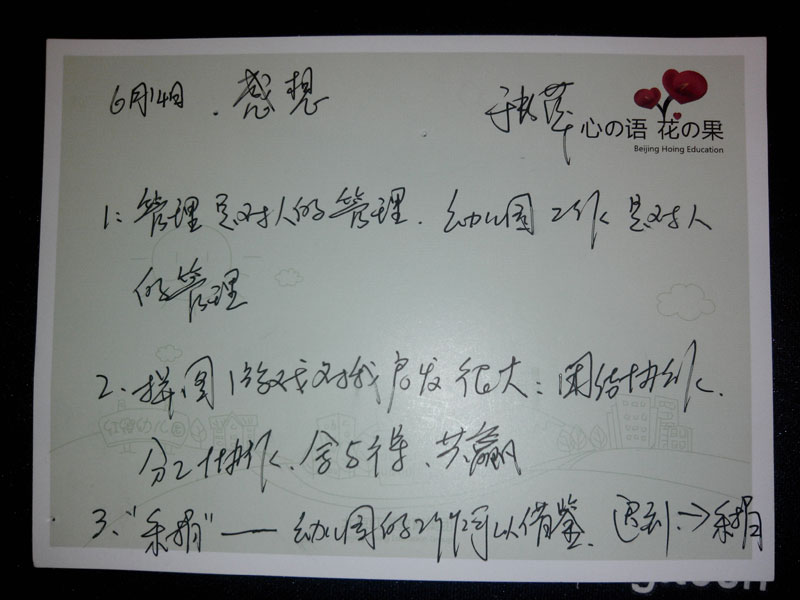 6月14日.感想
心の语 花の果
Beijing Hoing Education
1:管理是对人的管理.幼儿园工作是对人
的管理
2、拼图游戏对我启发很大:团结协作、
分工协作、舍与得、共赢
3、" "——幼儿园的工作可以借鉴.遇到.→